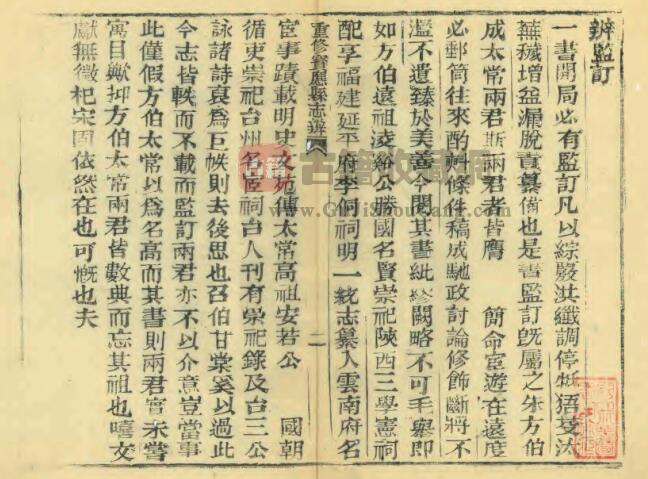 辨監訂
一書開局必有監訂凡以綜覈洪纖調停牴牾芟汰
蕪穢增益漏脫責纂脩也是書監訂旣屬之朱方伯
成太常兩君斯兩君者皆膺 簡命宦遊在遠度
必郵筒往來酌斟條件稿成馳政討論修飾斷將不
濫不遺臻於美善今閱其書紕繆闕略不可毛舉卽
如方伯遠祖淩谿公勝國名賢崇祀陝西三學憲祠
配享福建延平府李侗祠明一統志纂入雲南府名
重修寶應縣志辨
二
宦事蹟載明史文苑傳太常高祖安若公 國朝
循吏崇祀台州名宦祠台人刊有崇祀錄及台三公
詠諸詩裒爲巨帙則去後思也召伯甘棠奚以過此
今志皆軼而不載而監訂兩君亦不以介意豈當事
此僅假方伯太常以爲名高而其書則兩君實未嘗
寓目歟抑方伯太常兩君皆數典而忘其祖也噫文
獻無徵杞宋固依然在也可慨也夫
古籍收藏网